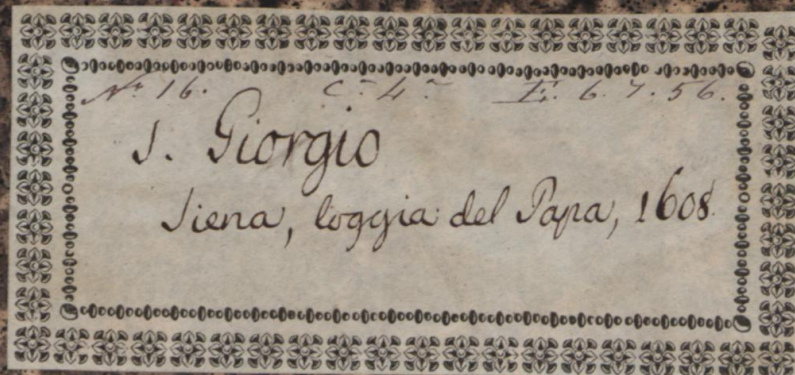 Nº 16. C.ª 4.ª E. 6. 7. 56.
S. Giorgio
Siena, loggia del Papa, 1608